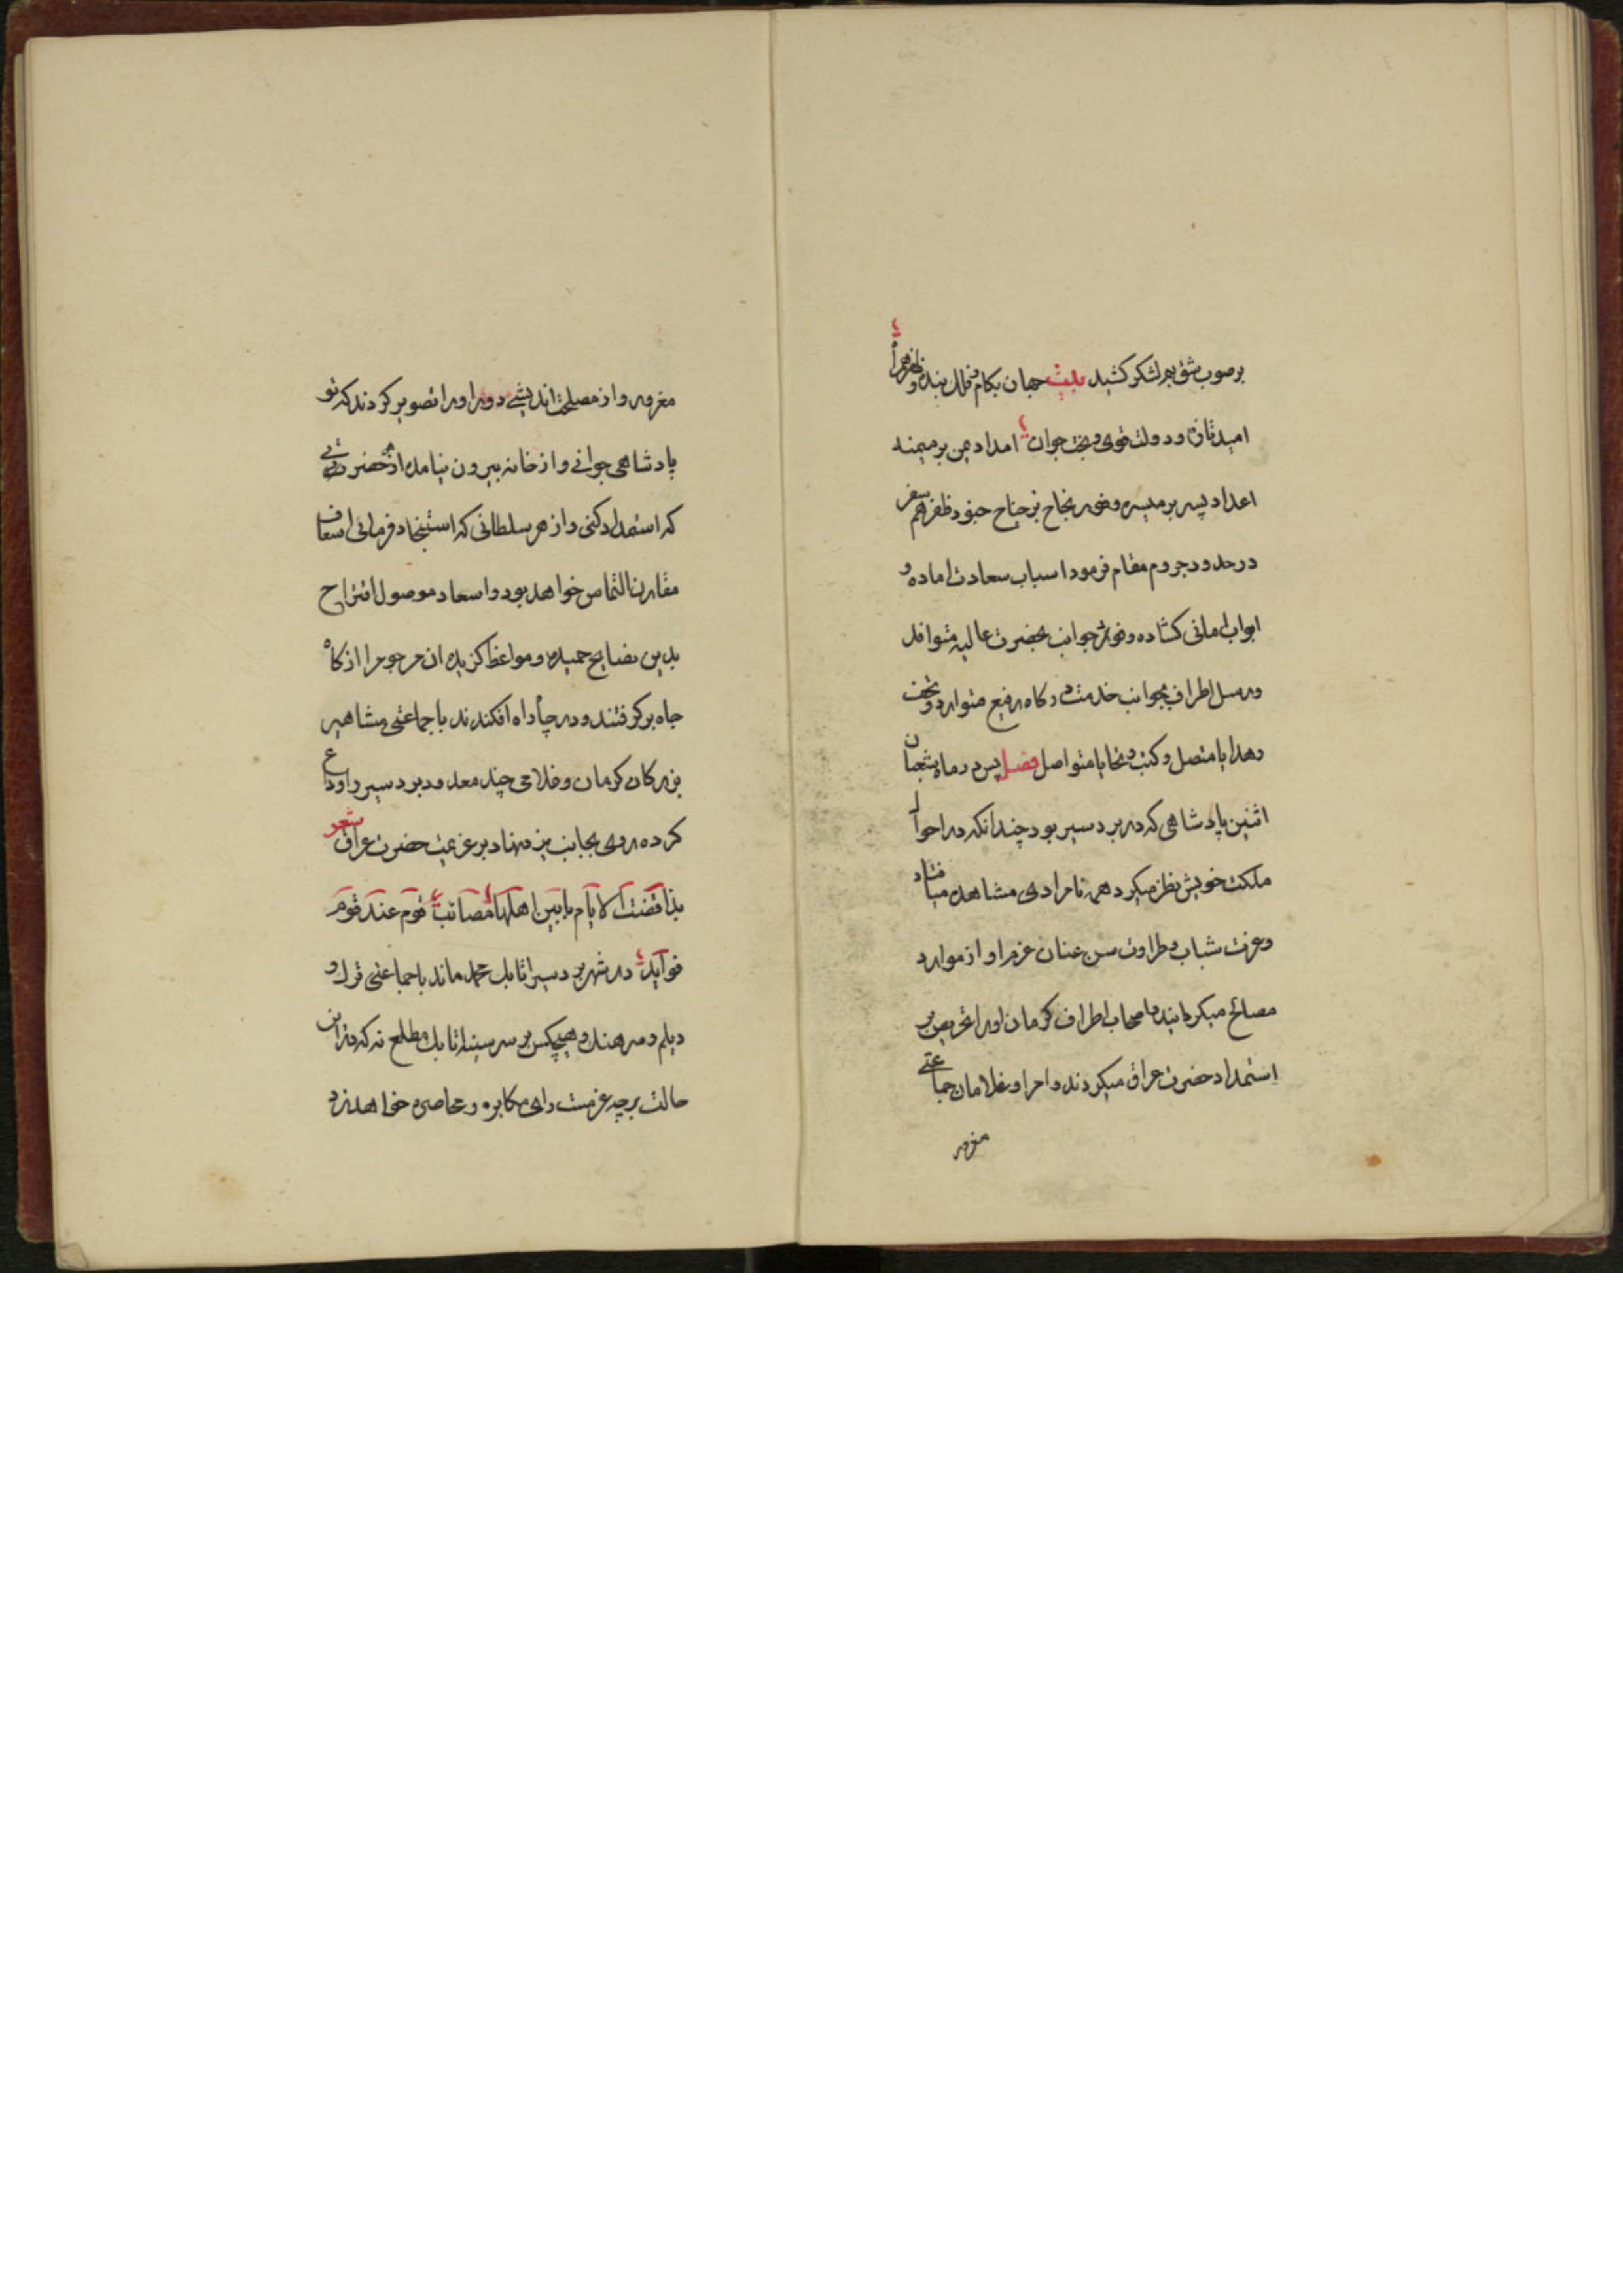 بر صوب شق بم لشکر کشید بیت جهان بکام و فلک بنده و ظفر همراه
امید تازه و دولت قوی و بخت جوان امداد یمن بر میمنه
اعداد یسر بر میسره و ضرب نجاح بر جناح جنود ظفر هم سفر
در حدود جروم مقام فرمود اسباب سعادت اماده و
ابواب امانی کشاده و فود جوانب بحضرت عالیه متوافد
ورسل اطراف بجوانب خدمت درکاه رفیع متوارد و تحف
وهدایا متصل و کتب و تحایا متواصل فصل پس در ماه شعبان
اثنین پادشاهی که در بردسیر بود چندانکه در احوال
ملکت خویش نظر میکرد همه نامرادی مشاهده میافتاد
و عزت شباب و طراوت سن عنان عزم او از موارد
مصالح میکردانید و اصحاب اطراف کرمان اورا تحریص بر
استمداد حضرت عراق میکردند و امرا و غلامان جماعتی
مغرور
مغرور و از مصلحت اندیشی دور اورا تصویر کردند که تو
پادشاهی جوانی و از خانه بیرون نیامده از هر حضرتی
که استمداد کنی و از هر سلطانی که استنجاد فرمائی اسعاف
مقارن التماس خواهد بود و اسعاد موصول اقتراح
بدین نصایح حمیده و مواعظ کزیده ان مرحوم را از کاه
جاه برکرفتند و در چاه راه افکندند با جماعتی مشاهیر
بزرکان کرمان و غلامی چند معدود بردسیر را وداع
کرده روی بجانب یزد نهاد بر عزیمت حضرت عراق شعر
بذا قضت الایام ما بین اهلها مصائب قوم عند قوم
فواید در شهر بردسیر اتابک محمد ماند با جماعتی ترک و
دیلم و سرهنک و هیچکس بر سر سینه اتابک مطلع نه که در این
حالت بر چه عزمست رای مکابره و محاصره خواهد زد